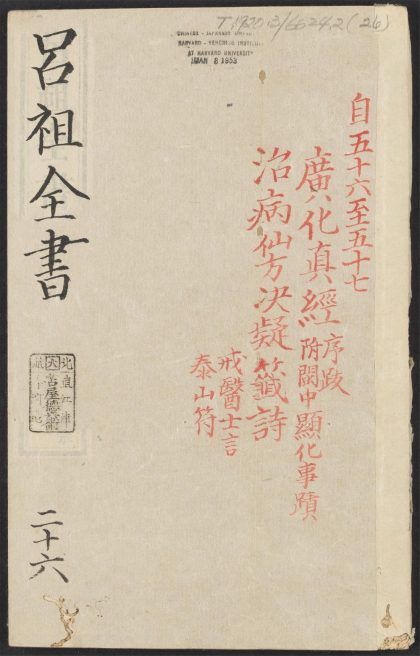 T 1930.3/6624.2 (26)
CHINESE - JAPANESE LIBRARY
HARVARD - YENCHING INSTITUTE
AT HARVARD UNIVERSITY
JAN 8 1953
自五十六至五十七
廣化真經 序跋 附閩中顯化事蹟
治病仙方決疑籤詩
戒醫士言
泰山符
呂祖全書
二十六